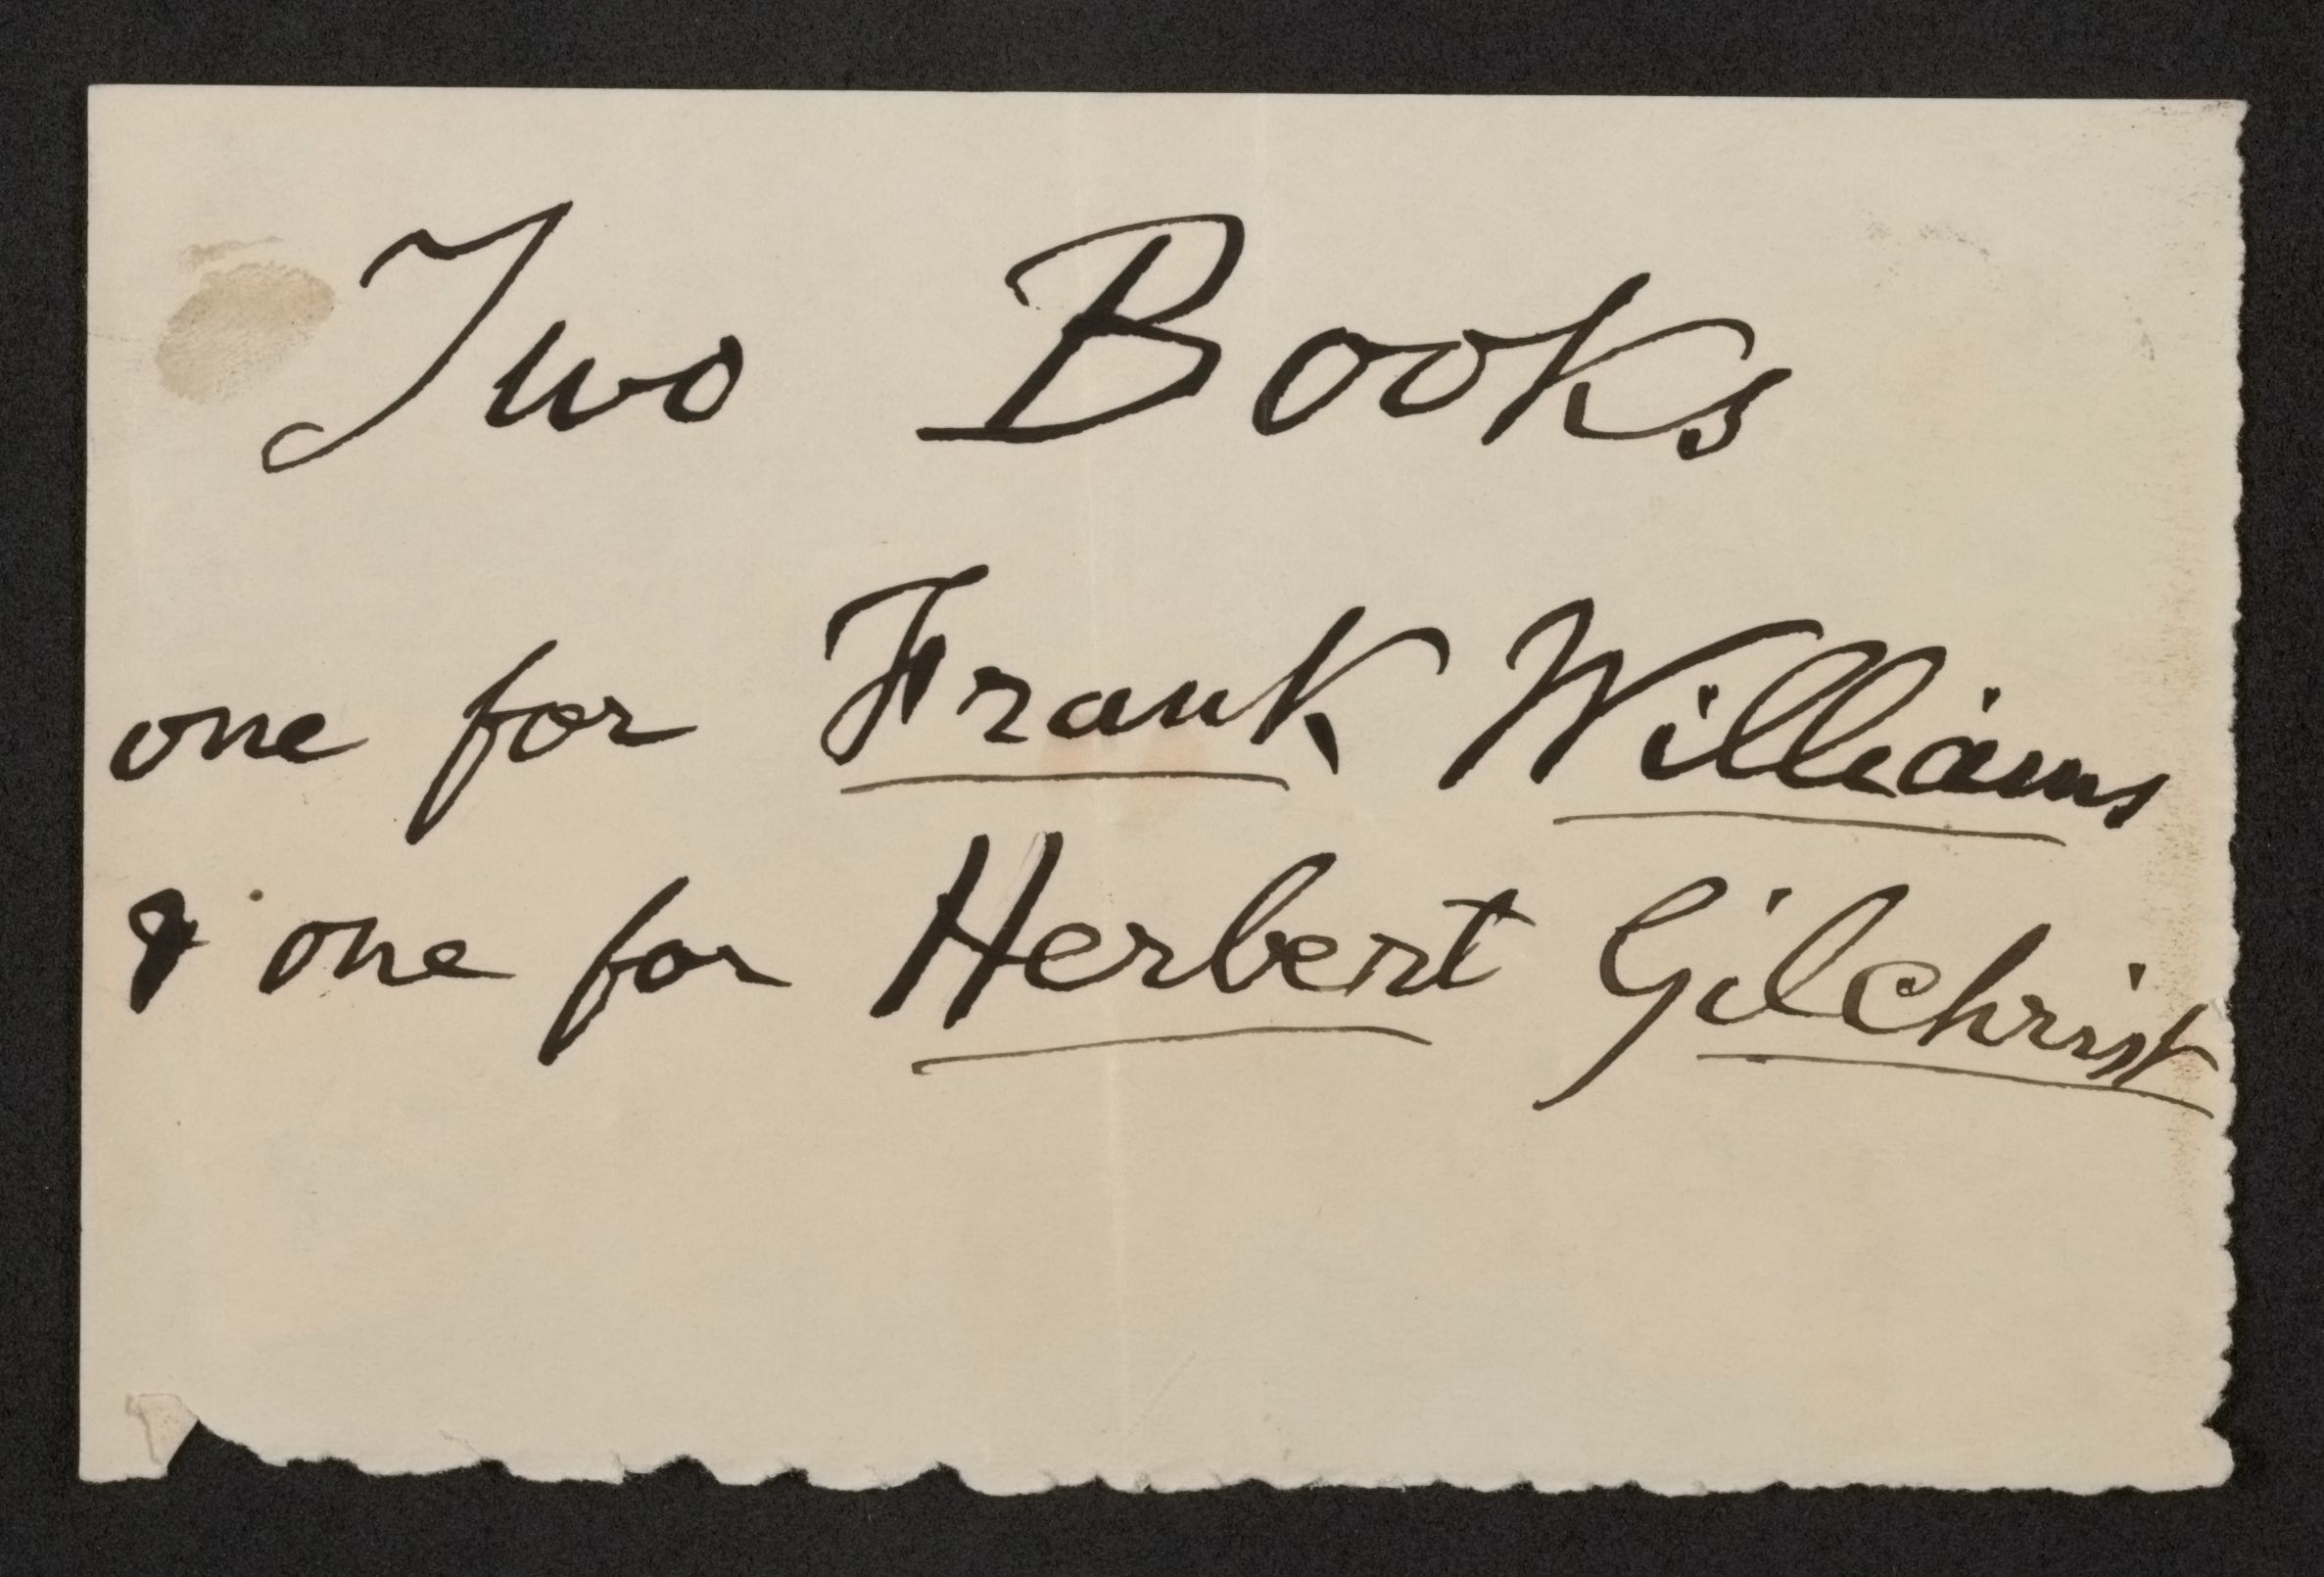 Two Books
one for Frank Williams
& one for Herbert Gilchrist